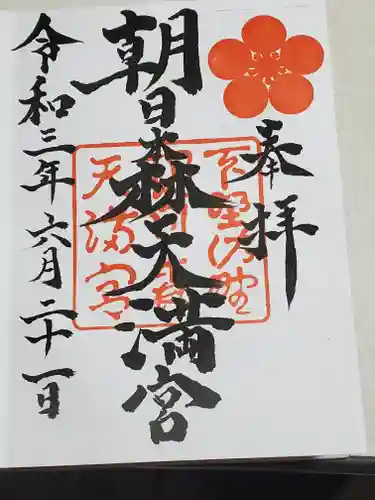 奉拝
朝日森天満宮
令和三年六月二十一日
下野佐野
天満宮